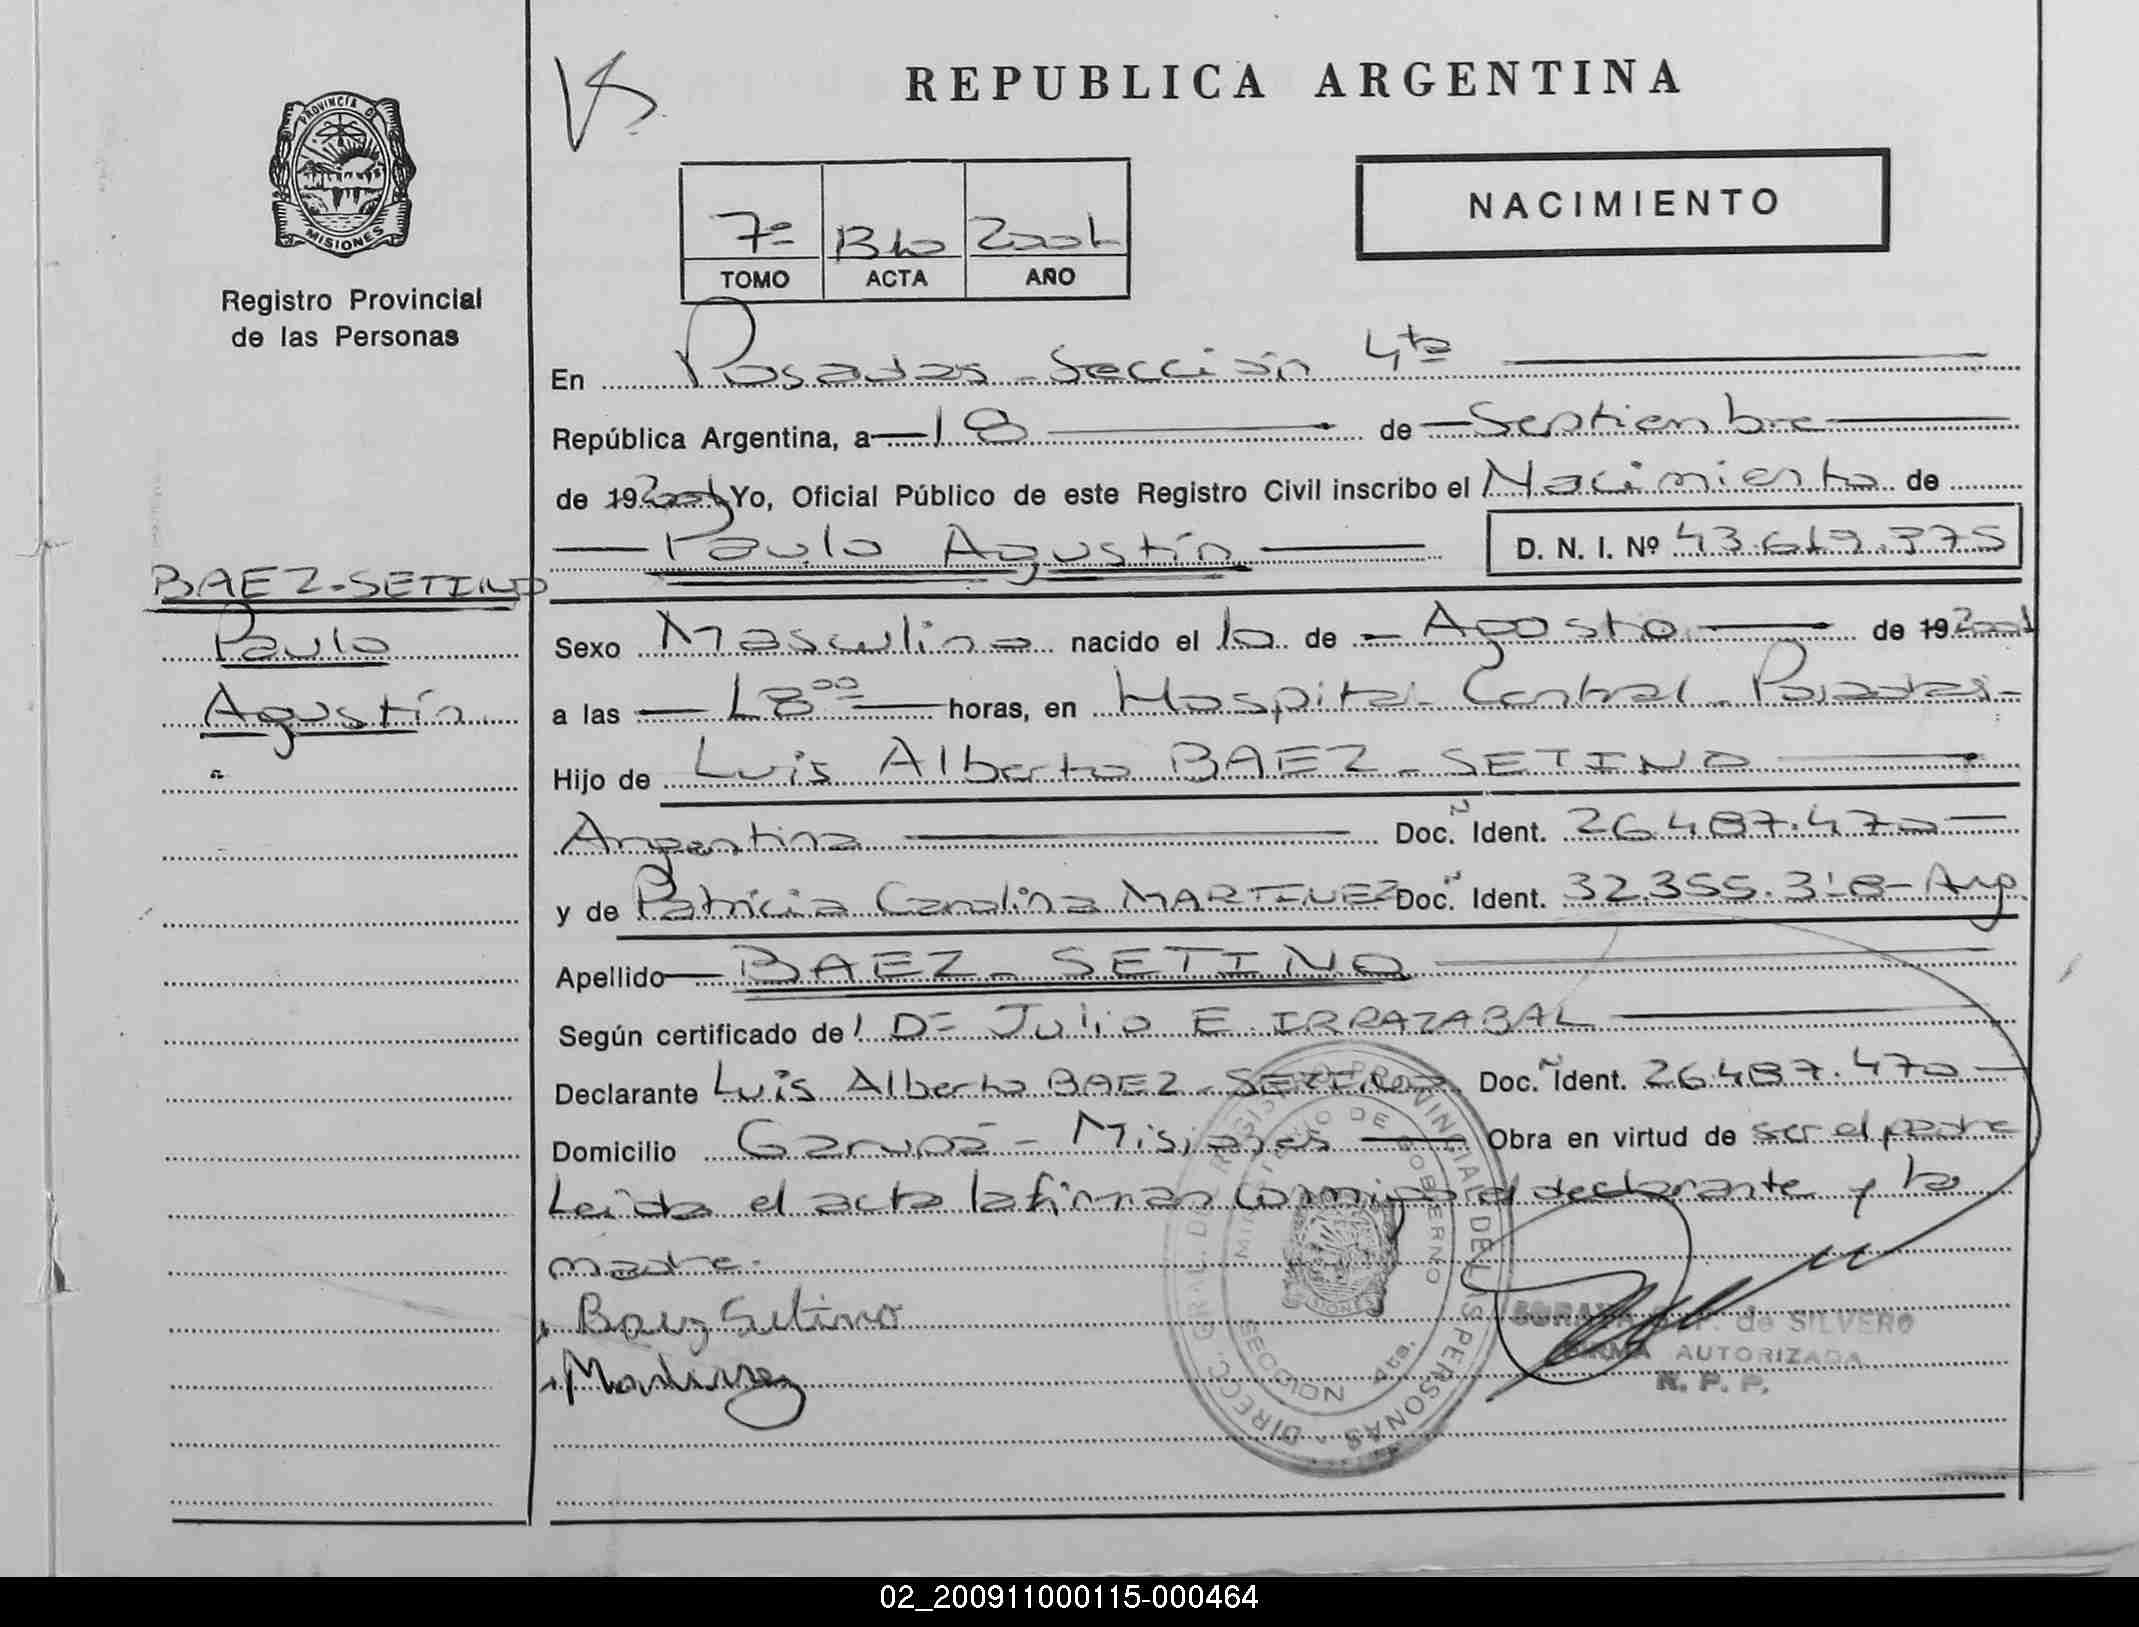 REPUBLICA ARGENTINA
PROVINCIA D
MISIONES
Registro Provincial
de las Personas
NACIMIENTO
7º
TOMO ACTA AÑO
En Posadas - Sección 4ta
República Argentina, a 18 de Septiembre
de 19 2001 Yo, Oficial Público de este Registro Civil inscribo el Nacimiento de
Paulo Agustín D. N. I. Nº 43.619.375
BAEZ-SETINO
Paulo
Agustín
Sexo Masculino nacido el 10 de Agosto de 19 2001
a las 18 00 horas, en Hospital Central - Posadas -
Hijo de Luis Alberto BAEZ - SETINO
Argentina Doc. Ident. 26.487.470
y de Patricia Carolina MARTINEZ Doc. Ident. 32.355.318 - Arg.
Apellido BAEZ - SETINO
Según certificado del Dr Julio E. IRRAZABAL
Declarante Luis Alberto BAEZ - SETINO Doc. Ident. 26.487.470
Domicilio Garupá - Misiones Obra en virtud de ser el padre
Leída el acta la firman conmigo el declarante y la
madre.
Baez Setino
Martinez
DIRECC. GRAL. DEL REGISTRO PROVINCIAL DE LAS PERSONAS
MINISTERIO DE GOBIERNO
SECCION 4ta.
MISIONES
de SILVERO
FIRMA AUTORIZADA
R. P. P.
02_200911000115-000464